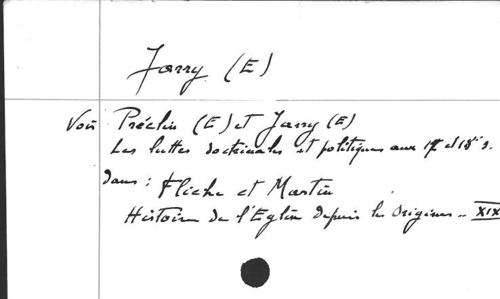 Jarry (E)
Voir Préclin (E) et Jarry (E)
Les luttes doctrinales et politiques aux 17e et 18e s.
dans : Fliche et Martin
Histoire de l'Eglise depuis les Origines .. XIX